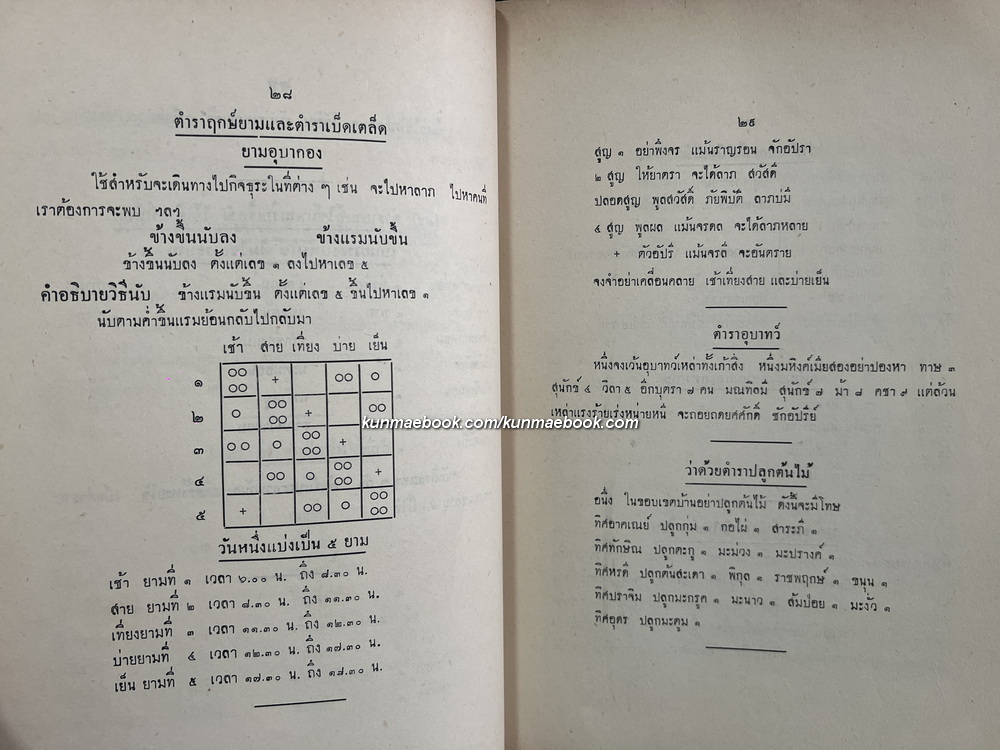 ๒๘
ตำราฤกษ์ยามและตำราเบ็ดเตล็ด
ยามอุบากอง
ใช้สำหรับจะเดินทางไปกิจธุระในที่ต่าง ๆ เช่น จะไปหาลาภ ไปหาคนที่
เราต้องการจะพบ ฯลฯ
ข้างขึ้นนับลง ข้างแรมนับขึ้น
ข้างขึ้นนับลง ตั้งแต่เลข ๑ ลงไปหาเลข ๕
คำอธิบายวิธีนับ ข้างแรมนับขึ้น ตั้งแต่เลข ๕ ขึ้นไปหาเลข ๑
นับตามค่ำขึ้นแรมย้อนกลับไปกลับมา
เช้า สาย เที่ยง บ่าย เย็น
๑ ○○○○ + ○○ ○
๒ ○ ○○○○ + ○○
๓ ○○ ○ ○○○○ +
๔ ○○ ○ ○○○○ +
๕ + ○○ ○ ○○○○
วันหนึ่งแบ่งเป็น ๕ ยาม
เช้า ยามที่ ๑ เวลา ๖.๐๐ น. ถึง ๘.๓๐ น.
สาย ยามที่ ๒ เวลา ๘.๓๐ น. ถึง ๑๑.๓๐ น.
เที่ยงยามที่ ๓ เวลา ๑๑.๓๐ น. ถึง ๑๒.๓๐ น.
บ่ายยามที่ ๔ เวลา ๑๒.๓๐ น. ถึง ๑๗.๓๐ น.
เย็น ยามที่ ๕ เวลา ๑๗.๓๐ น. ถึง ๑๘.๓๐ น.
๒๙
สูญ ๑ อย่าพึงจร แม้นราญรอน จักอัปรา
๒ สูญ ให้ยาตรา จะได้ลาภ สวัสดี
ปลอดสูญ พูลสวัสดิ์ ภัยพิบัติ ลาภบ่มี
๔ สูญ พูลผล แม้นจรดล จะได้ลาภหลาย
+ ตัวอัปรี แม้นจรลี่ จะอันตราย
จงจำอย่าเคลื่อนคลาย เช้าเที่ยงสาย และบ่ายเย็น
ตำราอุบาทว์
หนึ่งจงเว้นอุบาทว์เหล่าทั้งเก้าสิ่ง หนึ่งมหิงค์เมียสองอย่าปองหา ทาษ ๓
สุนักข์ ๔ วิลา ๕ อีกบุตรา ๗ คน มณฑิลมี สุนักข์ ๗ ม้า ๘ คชา ๙ แต่ล้วน
เหล่าแรงร้ายเร่งหน่ายหนี จะถอยถดยศศักดิ์ ชักอัปรีย์
kunmaebook.com/kunmaebook.com
ว่าด้วยตำราปลูกต้นไม้
อนึ่ง ในขอบเขตบ้านอย่าปลูกต้นไม้ ดังนี้จะมีโทษ
ทิศอาคเณย์ ปลูกกุ่ม ๑ กอไผ่ ๑ สาระภี ๑
ทิศทักษิณ ปลูกตะกู ๑ มะม่วง ๑ มะปรางค์ ๑
ทิศหรดี ปลูกต้นสะเดา ๑ พิกุล ๑ ราชพฤกษ์ ๑ ขนุน ๑
ทิศปราจิม ปลูกมะกรูด ๑ มะนาว ๑ ส้มป่อย ๑ มะงั่ว ๑
ทิศอุดร ปลูกมะตูม ๑